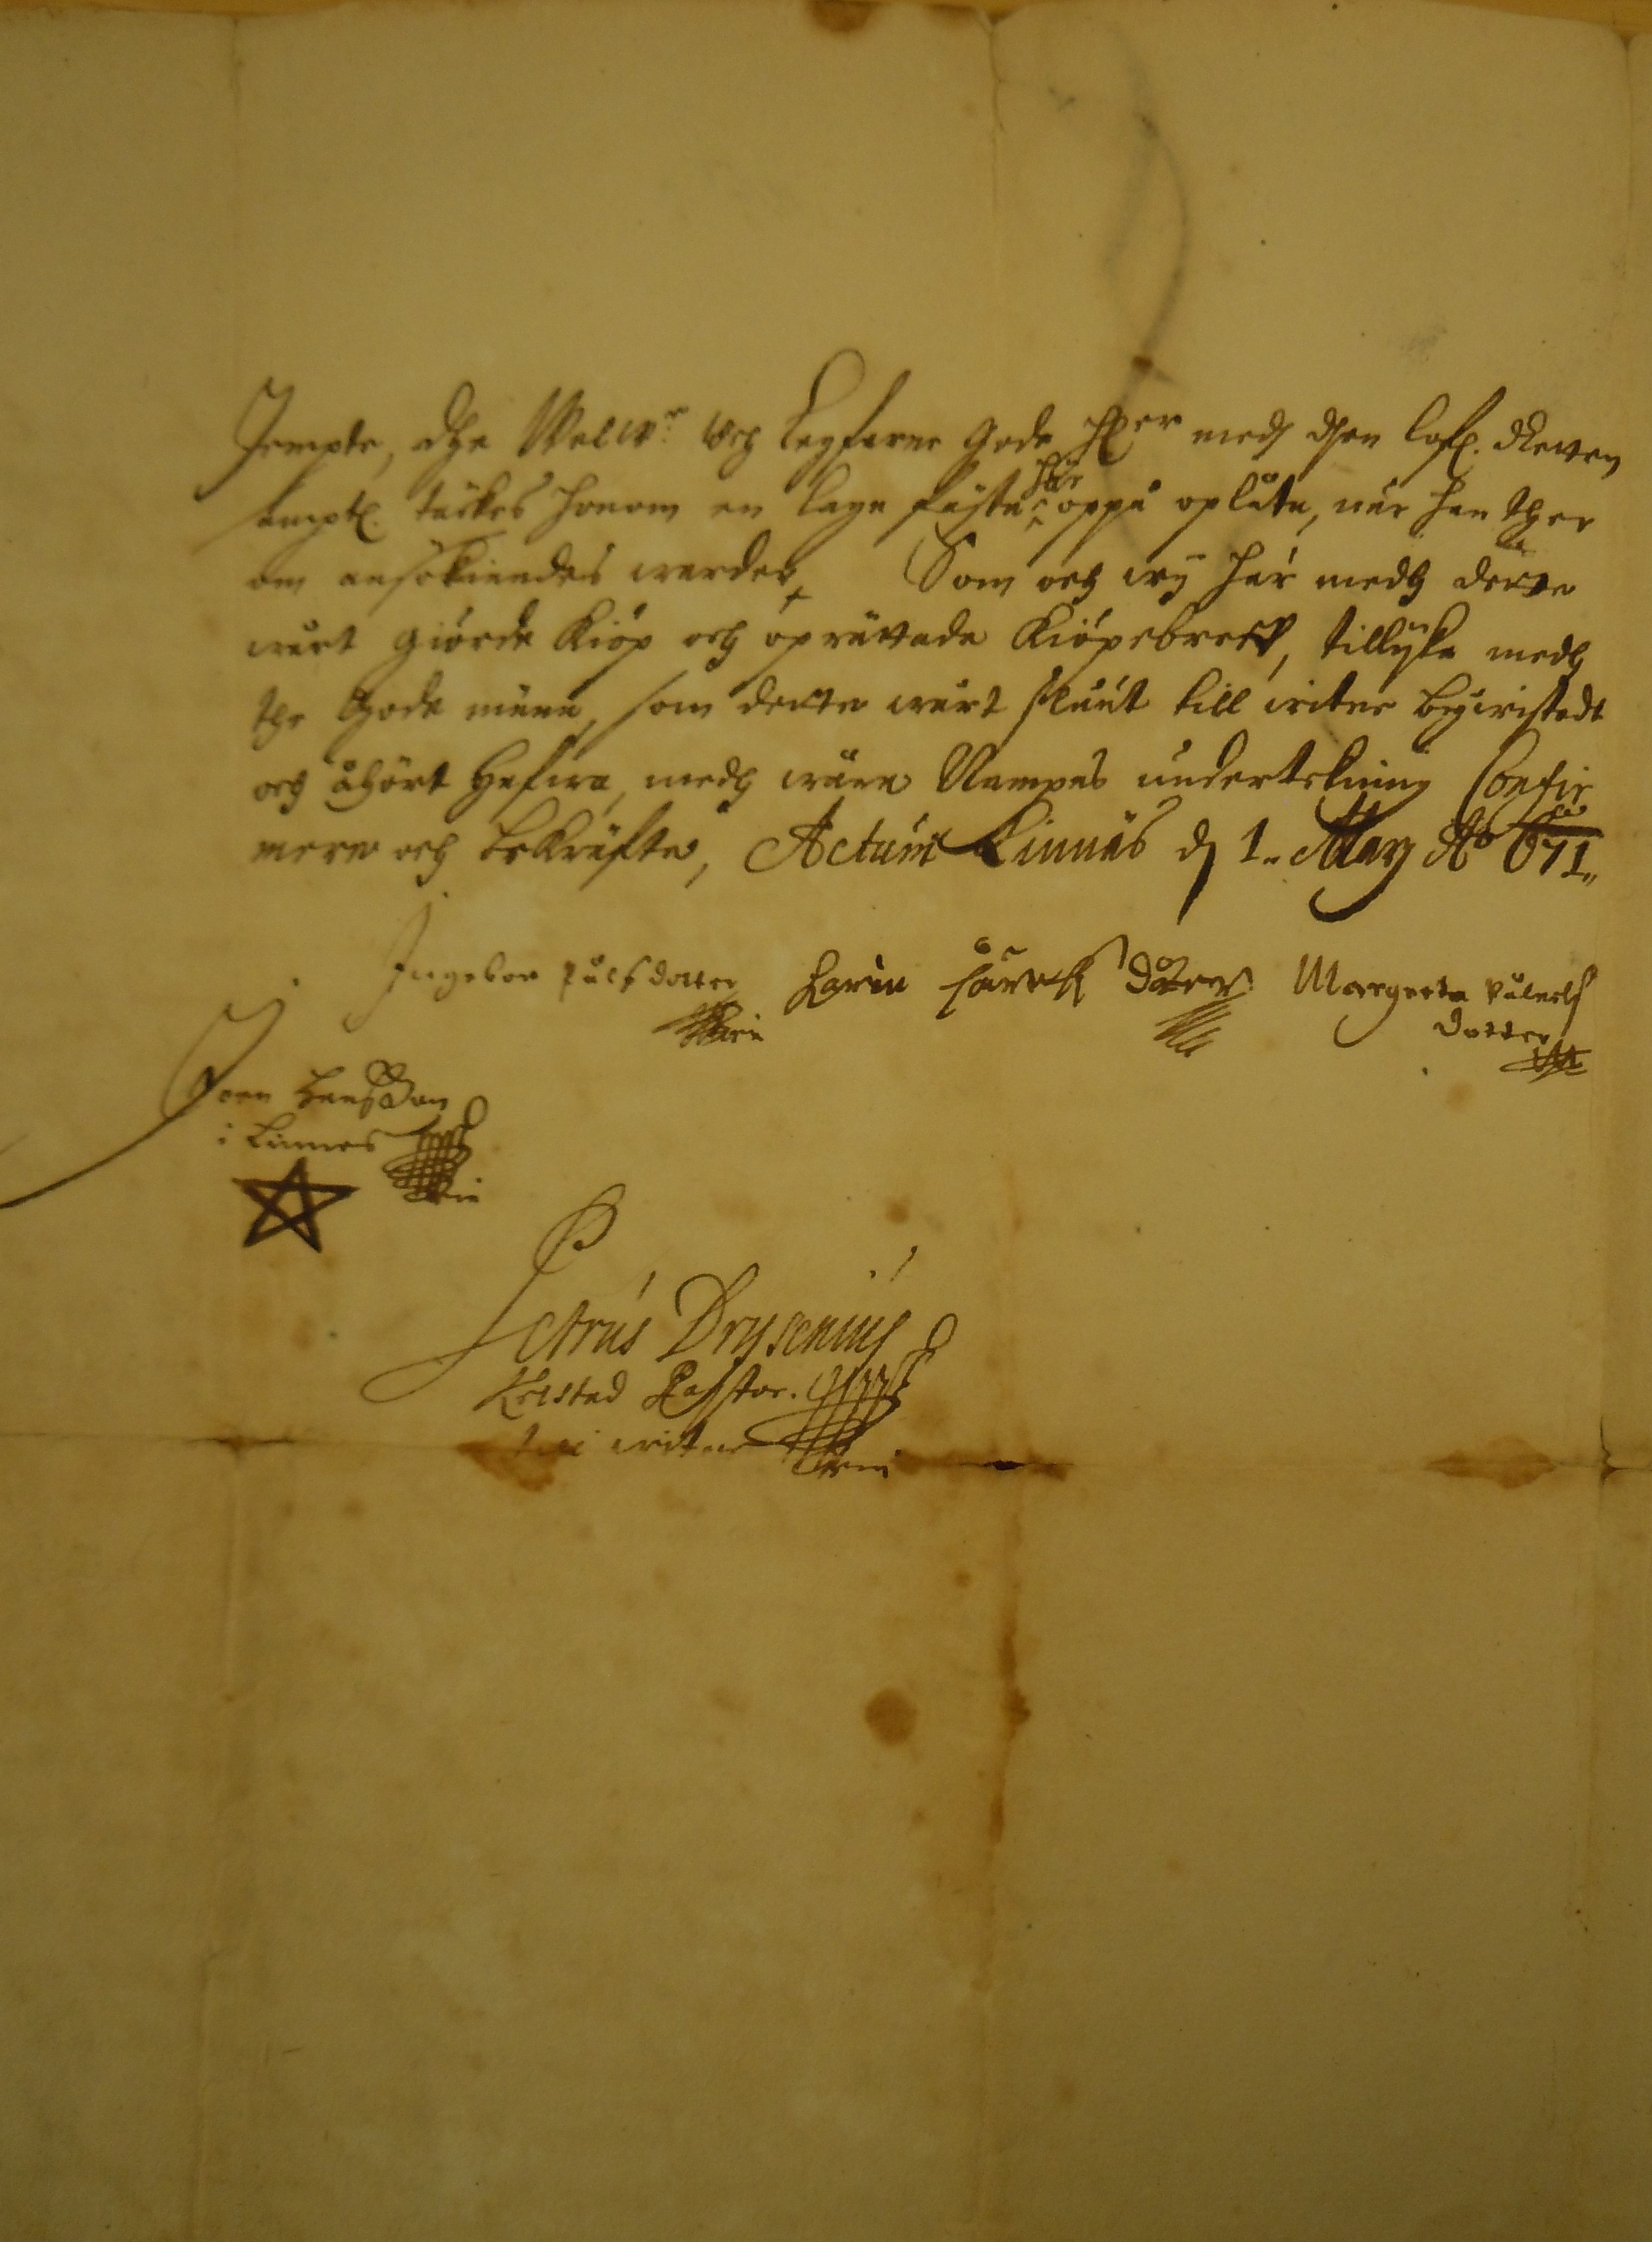 Jempte, dhe Welw:r och Lagfarne Gode H:er medh then lofl. Retten
sampt. täckes honom en laga fasta här oppå oplåta, när han ther
om ansökiandes warder, Som och wij här medh dette
wårt giörde Kiöp och oprättade Kiöpebreff, tillijka medh
the Gode männ, som dette wårt sluut till witne bijwistadt
och åhört hafwa, medh wåra Nampns underteknings Confir
mere och bekräfte, Actum Linnäs d 1. May A:o 671.
Ingebor Påls dotter Karin Lars dåter Margreta Pålaels
dotter
Joen Hansson
i Linnes
Petrus Drysenius
Pastor.
witne